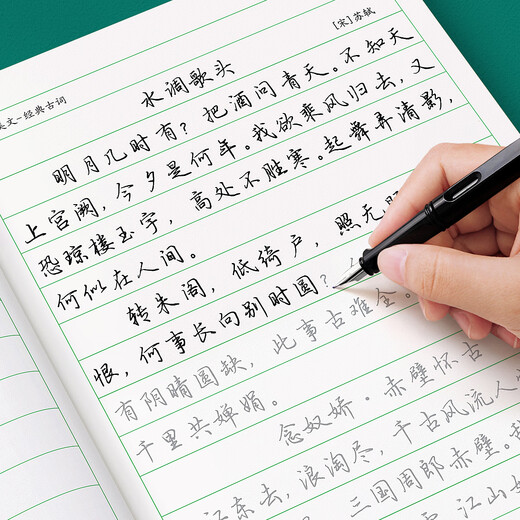 文-经典古词
[宋]苏轼
水调歌头
明月几时有？把酒问青天。不知天
上宫阙，今夕是何年。我欲乘风归去，又
恐琼楼玉宇，高处不胜寒。起舞弄清影，
何似在人间。
转朱阁，低绮户，照无
恨，何事长向别时圆？
有阴晴圆缺，此事古难全。
千里共婵娟。
念奴娇·赤壁怀古
江东去，浪淘尽，千古风流人
三国周郎赤壁。
江山如